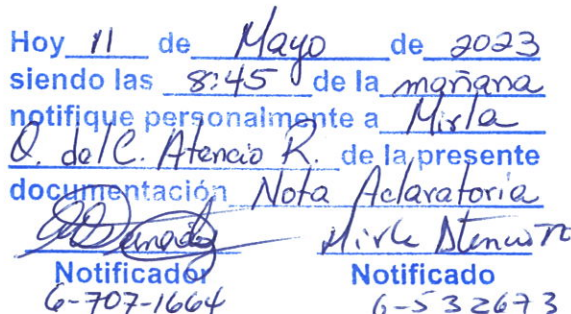 Hoy 11 de Mayo de 2023
siendo las 8:45 de la mañana
notifique personalmente a Mirla
Q. del C. Atencio R. de la presente
documentación Nota Aclaratoria
Mirla Atencio R
Notificador Notificado
6-707-1664 6-532673